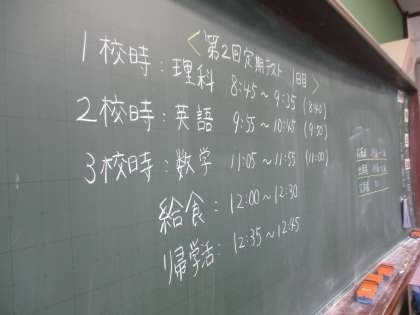 <第2回定期テスト 1日目>
1校時:理科 8:45〜9:35 (8:40)
2校時:英語 9:55〜10:45 (9:50)
3校時:数学 11:05〜11:55 (11:00)
給食:12:00〜12:30
帰学活:12:35〜12:45